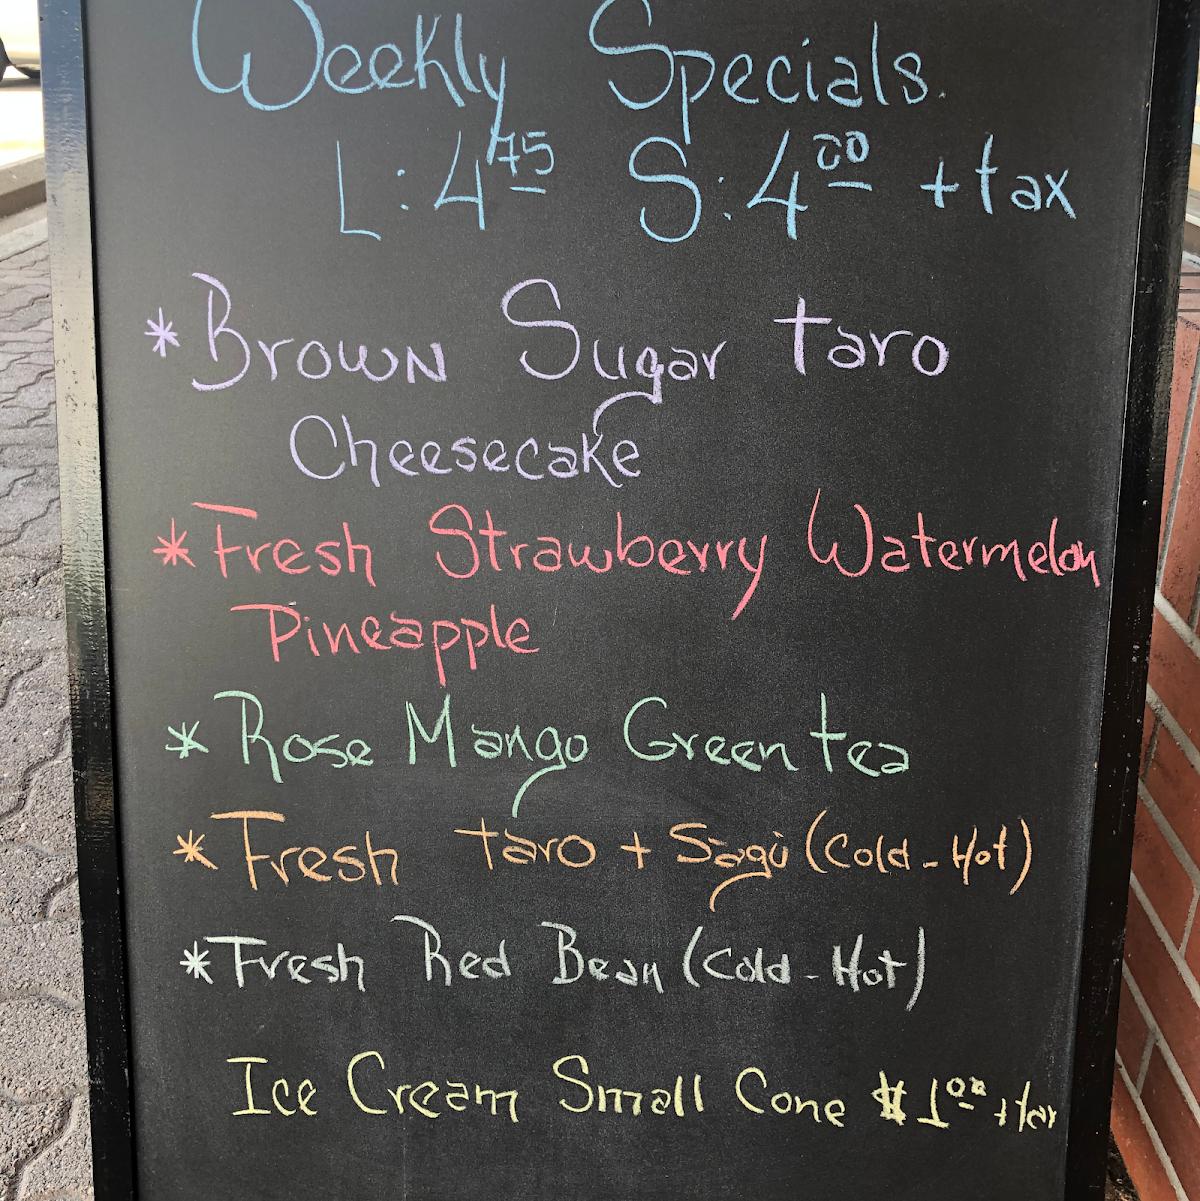 Weekly Specials.
L: 4.75 S: 4.00 + tax
* Brown Sugar taro
Cheesecake
* Fresh Strawberry Watermelon
Pineapple
* Rose Mango Green tea
* Fresh taro + Sago (Cold - Hot)
* Fresh Red Bean (Cold - Hot)
Ice Cream Small Cone $1.00 + tax